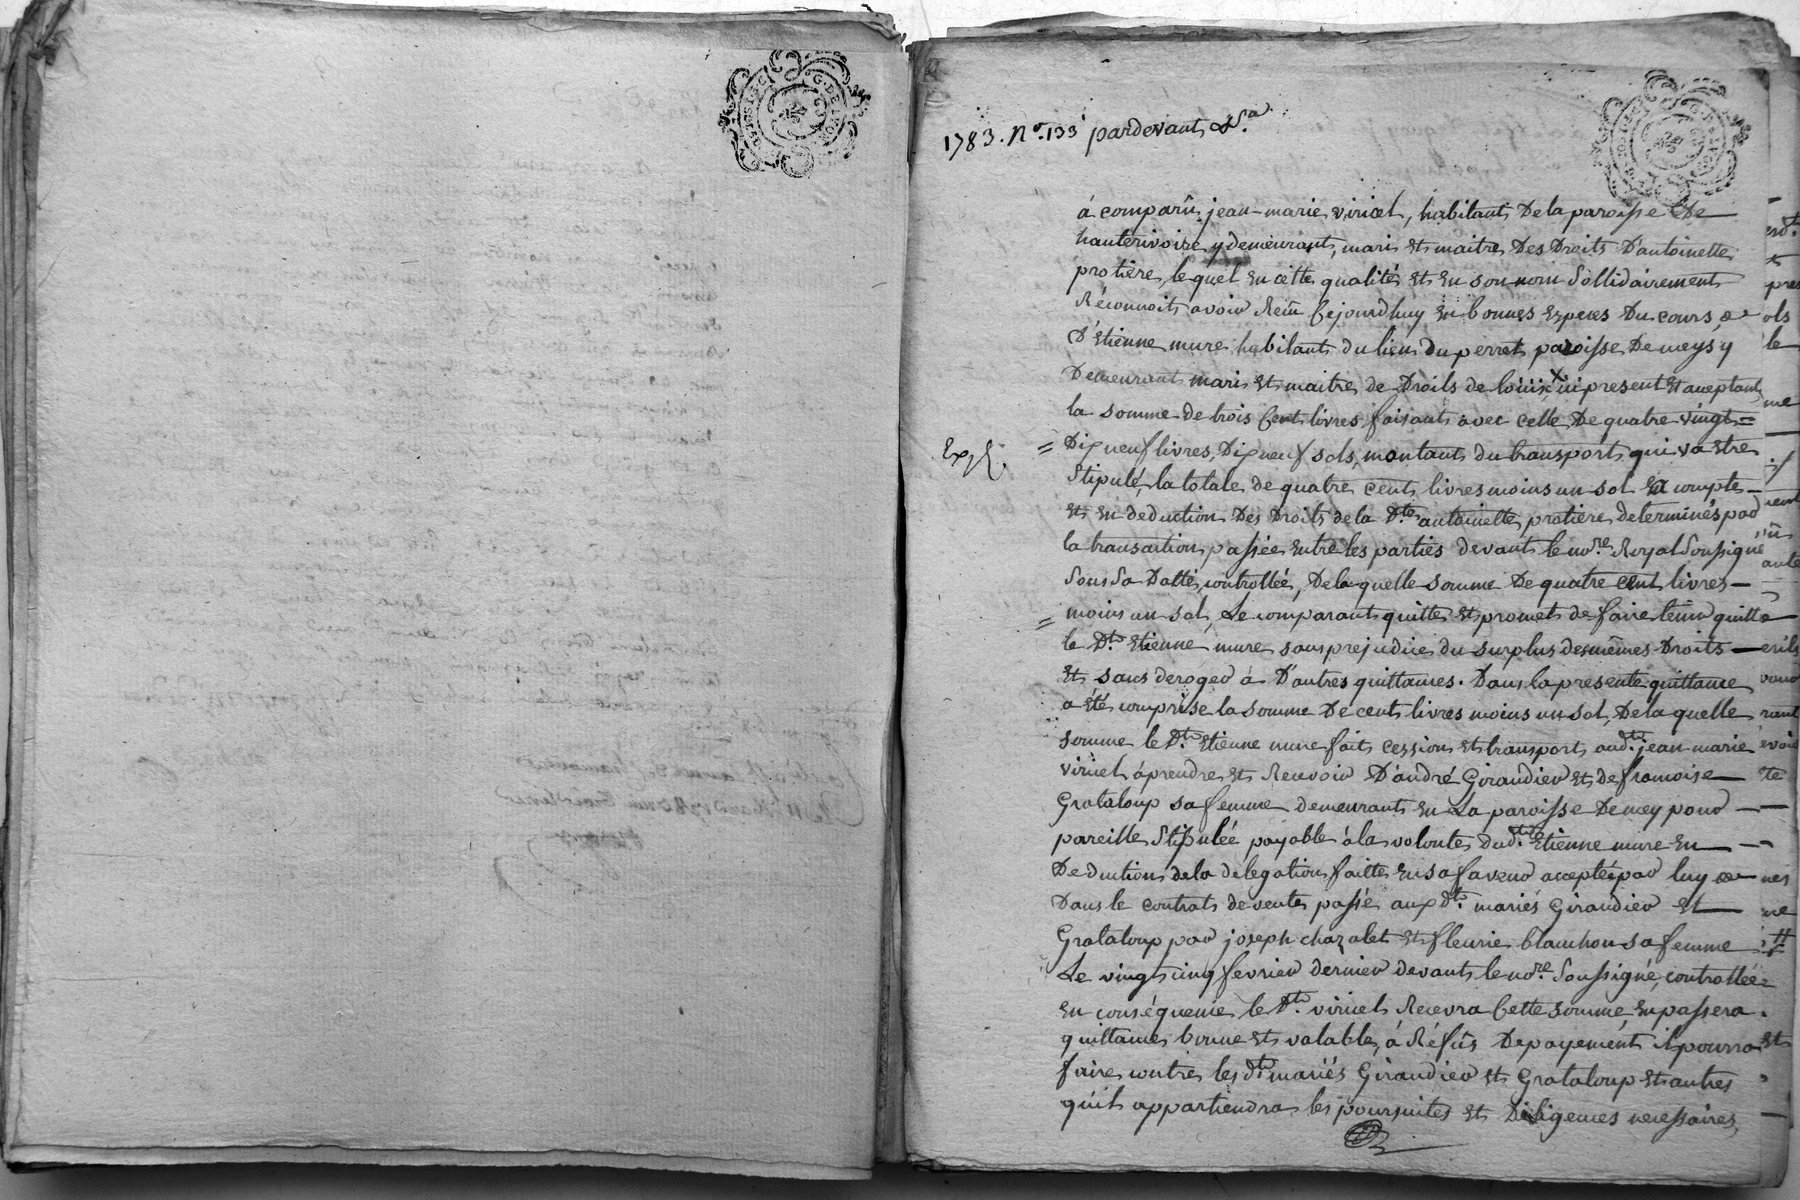 1783. N°. 133 pardevant &a
á comparû jean-marie viricel, habitant De la paroisse De
hauterivoire y demeurant, mari et maitre Des Droits D'antoinette
protière, lequel en cette qualité et en son nom Sollidairement
Réconnoit avoir Reçû Cejourd'huy en bonnes especes Du cours,
D'Etienne mure habitant du lieu du perret paroisse De meys y
Demeurant mari et maitre de Droits de ici present et acceptant
la somme de trois Cent livres faisant avec celle De quatre vingt =
Exp.é
= Dix neuf livres, Dix neuf sols, montant du transport qui va etre
Stipulé, la totale de quatre cent livres moins un sol a compte
et en deduction Des Droits de la Dte. antoinette protière determinés par
la transaction passée entre les parties devant le nore. Royal Soussigné
Sous Sa Datte, controllée, De laquelle somme De quatre cent livres
= moins un sol, Le comparant quitte et promet de faire tenir quitte
le Dt. Etienne mure sans prejudice du surplus des mêmes Droits
et sans deroger à D'autres quittances. Dans la presente quittance
a été comprise la somme De cent livres moins un sol, De la quelle
somme le Dt. Etienne mure fait cession et transport, aud.t jean marie
viricel à prendre et Recevoir D'andré Giraudier et de francoise
Grataloup sa femme demeurants en La paroisse De mey pour
pareille Stipulée payable à la volonté dud.t Etienne mure en
Deduction de la delegation faitte en sa faveur acceptée par luy
Dans le contrat de vente passé aux dts. mariés Giraudier et
Grataloup par joseph chazalet et fleurie blanchon sa femme
Le vingt cinq fevrier dernier devant le nore. Soussigné, controllée
en conséquence le Dt. viricel Recevra Cette somme, en passera
quittance bonne et valable, á Réfus De payement il pourra
faire contre les dts mariés Giraudier et Grataloup et autres
qu'il appartiendra les poursuites et Diligences necessaires,